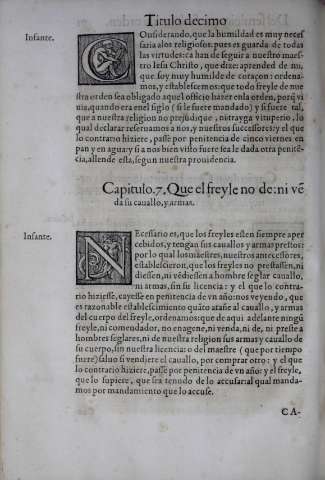 Titulo decimo
Infante.
COnsiderando, que la humildad es muy neces
saria alos religiosos, pues es guarda de todas
las virtudes: ca han de seguir a nuestro maes
tro Iesu Christo, que dize: aprended de mi,
que soy muy humilde de coraçon: ordena-
mos, y establescemos: que todo freyle de nue
stra orden sea obligado aquel officio hazer enla orden, porq̃ vi
uia, quando era enel siglo (si le fuere mandado) y si fuere tal,
que a nuestra religion no prejudique, ni trayga vituperio, lo
qual declarar reseruamos a nos, y nuestros successores: y el que
lo contrario hiziere, passe por penitencia de cinco viernes en
pan y en agua: y si a nos bien visto fuere sea le dada otra penitẽ-
cia, allende esta, segun nuestra prouidencia.
Capitulo. 7. Que el freyle no de: ni vẽ
da su cauallo, y armas.
Infante.
NEcessario es, que los freyles esten siempre aper
cebidos, y tengan sus cauallos y armas prestos:
por lo qual los maestres, nuestros antecessores,
establescieron, que los freyles no prestassen, ni
diessen, ni vẽdiessen a hombre seglar cauallo,
ni armas, sin su licencia: y el que lo contra-
rio hiziesse, cayesse en penitencia de vn año: nos veyendo, que
es razonable establescimiento quãto atañe al cauallo, y armas
del cuerpo del freyle, ordenamos: que de aqui adelante ningũ
freyle, ni comendador, no enagene, ni venda, ni de, ni preste a
hombres seglares, ni de nuestra religion sus armas y cauallo de
su cuerpo, sin nuestra licencia: o del maestre (que por tiempo
furre) saluo si vendiere el cauallo, por comprar otro: y el que
lo contrario hiziere, passe por penitencia de vn año: y el freyle,
que lo supiere, que sea tenudo de lo accusar al qual manda-
mos por mandamiento que lo accuse.
CA-